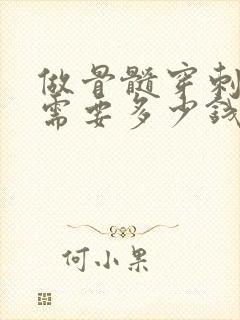 做骨髓穿刺
需要多少钱
何小果